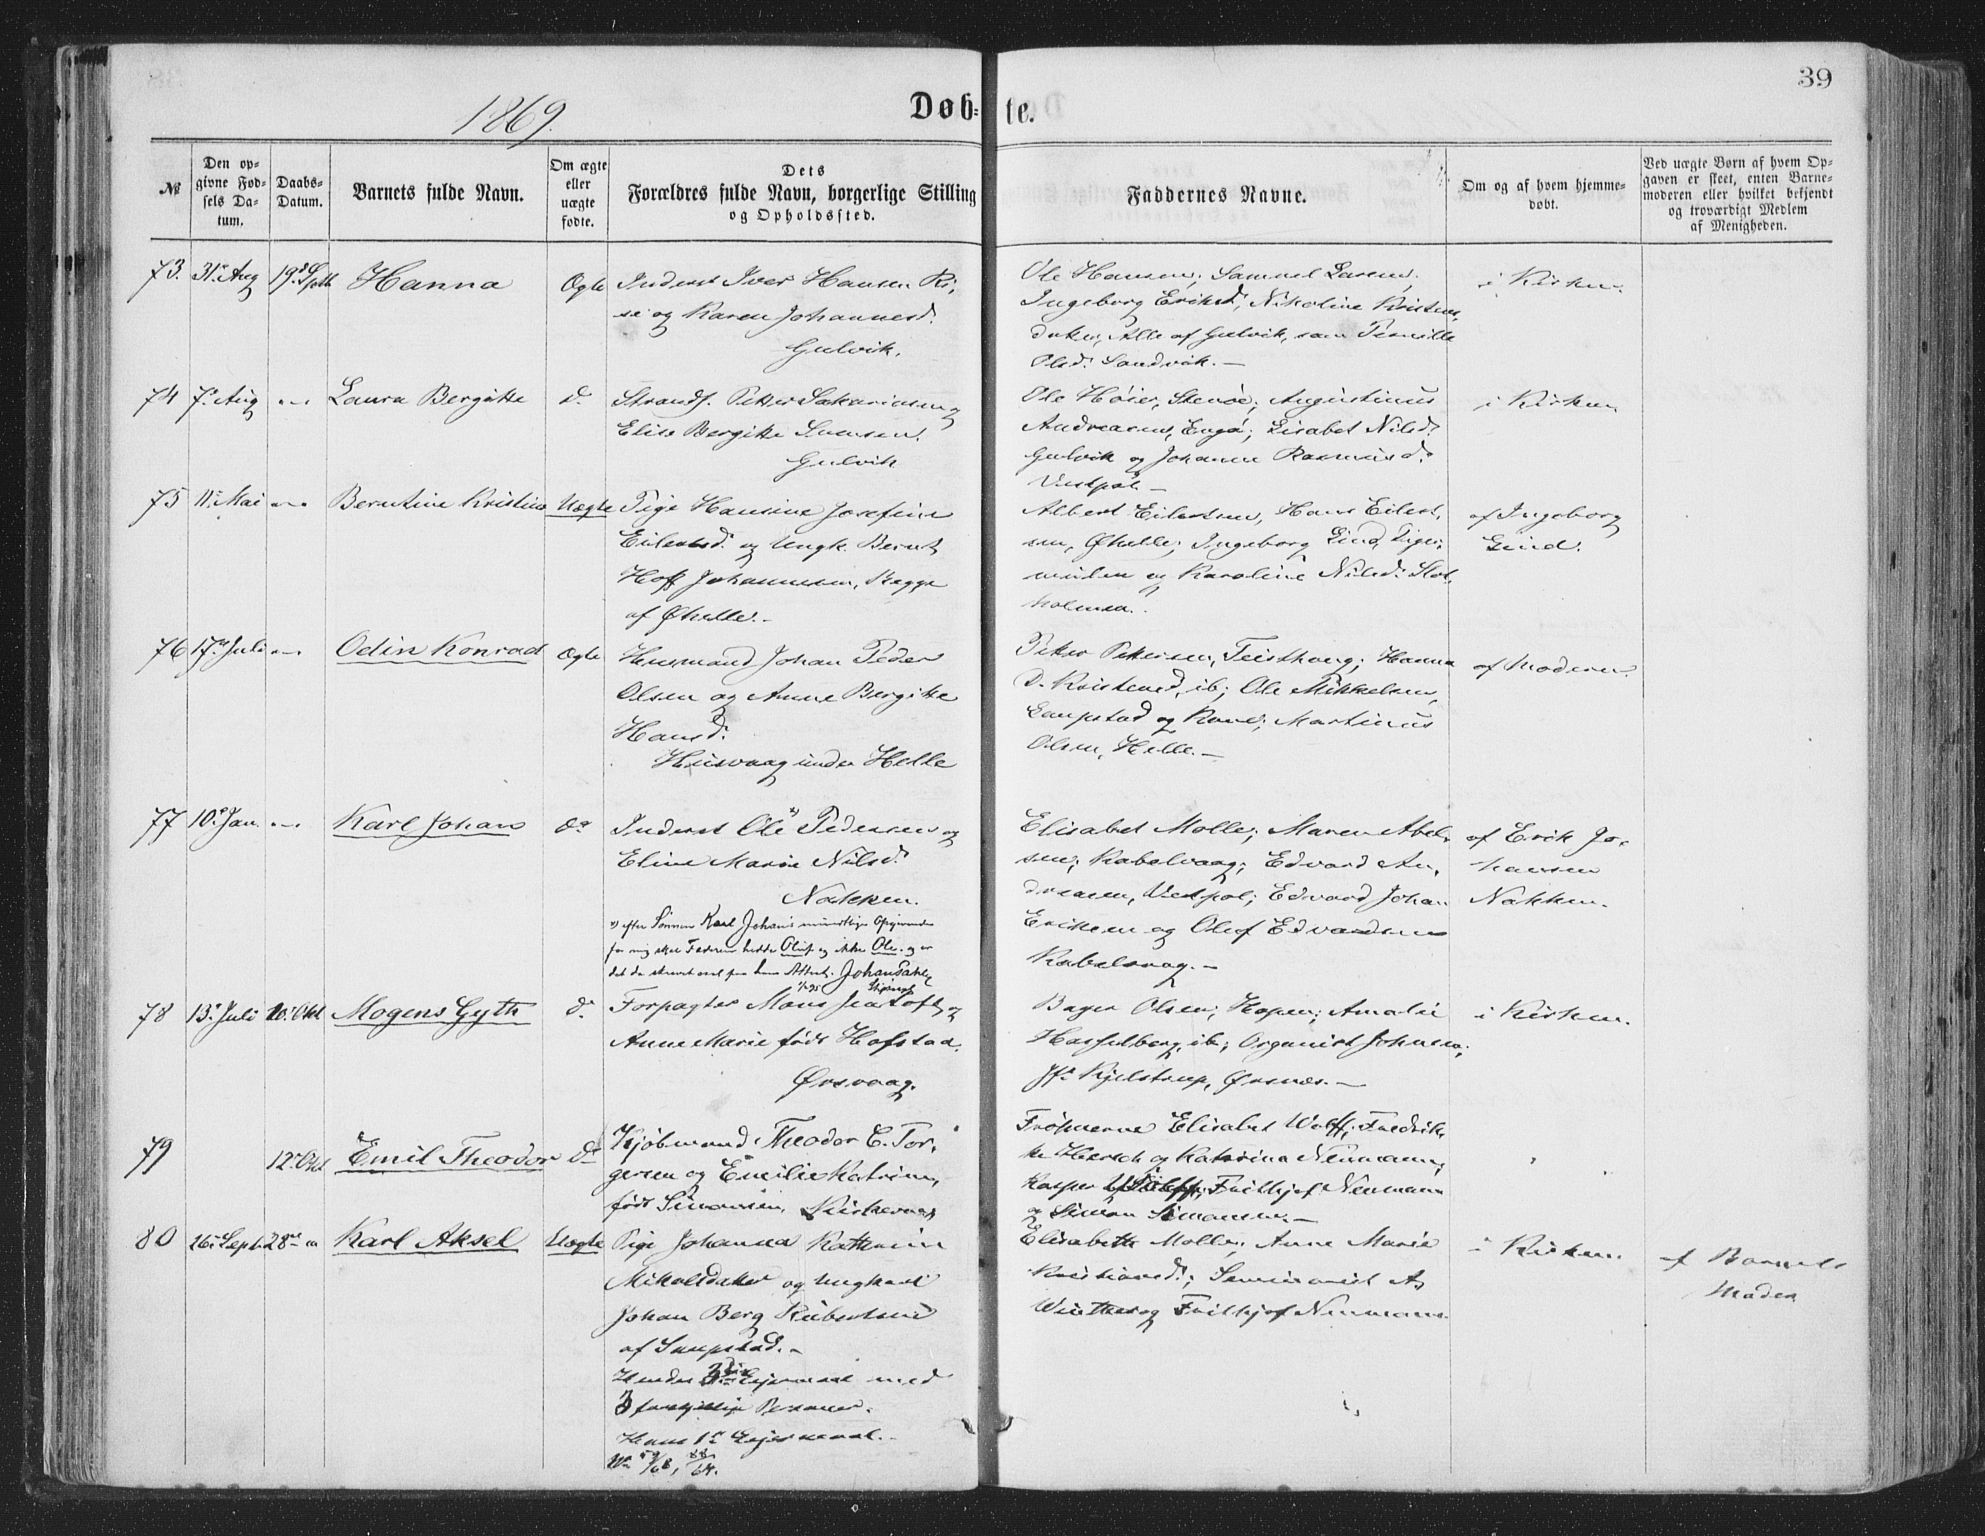 39
1869.
Døb- te.
№
Den op-
givne Fød-
sels Da-
tum.
Daabs-
Datum.
Barnets fulde Navn.
Om ægte
eller
uægte
fødte.
Dets
Forældres fulde Navn, borgerlige Stilling
og Opholdssted.
Faddernes Navne.
Om og af hvem hjemme-
døbt.
Ved uægte Børn af hvem Op-
gaven er skeet, enten Barne-
moderen eller hvilket bekjendt
og troværdigt Medlem
af Menigheden.
73. 31. Aug 19. Septb Hanna Ægte Inderst Iver Hansen Ri-
se og Karen Johannesd.
Gulvik.
Ole Hansen, Samuel Larsen,
Ingeborg Eriksd, Nikoline Kristens-
datter, Alle af Gulvik, samt Pernille
Olsd. Sandvik. —
i Kirken.
74 7. Aug Laura Bergitte do. Strands. Petter Sakariasen og
Elise Bergitte Svensen.
Gulvik
Ole Høier, Augustinus
Andreasen, Engø; Lisabet Nilsd.
Gulvik og Johanne Rasmusd.
Vestpol —
i Kirken
75 11. Mai Berntine Kristine Uægte Pige Hansine Josefine
Eilertsd. og Ungk. Bernt
Hoff Johannesen,
af Øhelle. -
Albert Eilertsen, Hans Eilert-
sen, Øhelle; Ingeborg Lind,
og Karoline Nilsd.
af Ingeborg
Lind.
76 17. Juli Odin Konrad Ægte Husmand Johan Peder
Olsen og Anne Bergitte
Hansd.
Husvaag under Helle
Peter Petersen, Teisthaug; Hanna
D. Kristensd, ib; Ole Mikkelsen,
Laupstad og Kone; Martinus
Olsen, Helle. —
af Moderen.
77 10. Jan. Karl Johan do Inderst Ole* Pedersen og
Eline Marie Nilsd.
Nakken.
*) efter Sønnen Karl Johan's mundtlige Opgivende
for mig skal Faderen hedde Oluf og ikke Ole, og er
det da skrevet saa paa hans Attest. Johan
Elisabet Molle; Maren Abel-
sen, Kabelvaag; Edvard An-
dreasen, Vestpol; Edvard Johan
Eriksen og Oluf Edvardsen
Kabelvaag. -
af Erik Jo-
hansen
Nakken.
78 13. Juli 10. Okt Mogens Gyth do. Forpagter Mons Toft og
Anne Marie født Hofstad.
Ørsvaag.
Olsen, Hopen; Amalie
Hasselberg, ib; Organist Johnsen,
Jfr. Kjelstrup, Ørsnæs. —
i Kirken.
79 12. Okt Emil Theodor do Kjøbmand Theodor C. Tor-
gersen og Emilie Katrine,
født Simonsen, Kirkevaag
Frøknerne Elisabet Wolff, Fredrik-
ke og Katrine Neumann,
Kasper Wolff, Frithjof Neumann
og Simon Simonsen. —
80 26. Sept. 28 Karl Aksel Uægte Pige Johanna Kathrine
Mikalsdatter og Ungkarl
Johan Berg
af Laupstad. -
Hendes Leiermaal med
3 forskjellige Personer.
Hans 1. Leiermaal. -
Elisabeth Molle, Anne Marie
Kristiansd; Seminarist A.
Winther og Frithjof Neumann.
i Kirken.
af Barnets
Moder